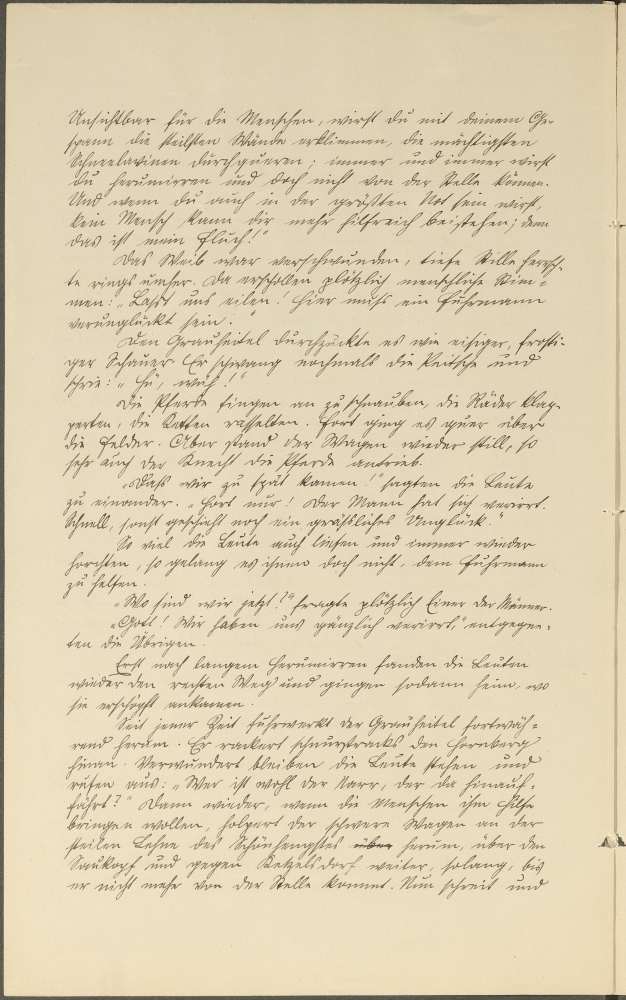 Unsichtbar für die Menschen, wirst du mit deinem Ge-
spann die steilsten Wände erklimmen, die mächtigsten
Schneelawinen durchqueren; immer und immer wirst
du herumirren und doch nicht von der Stelle können.
Und wenn du auch in der größten Not sein wirst,
kein Mensch kann dir mehr hilfreich beistehen; denn
das ist mein Fluch!"
Das Weib war verschwunden, tiefe Stille herrsch-
te rings umher. Da erschollen plötzlich menschliche Stim-
men: „Lasst uns eilen! Hier muß ein Fuhrmann
verunglückt sein."
Den Grauheitel durchzuckte es wie eisiger, frosti-
ger Schauer. Er schwang nochmals die Peitsche und
schrie: „Hü, wüh!"
Die Pferde fingen an zu schnauben, die Räder klap-
perten, die Ketten rasselten. Fort ging es quer über
die Felder. Aber stand der Wagen wieder still, so
sehr auch der Knecht die Pferde antrieb.
„Daß wir zu spät kamen!" sagten die Leute
zu einander. „Hört nur! Der Mann hat sich verirrt.
Schnell, sonst geschieht noch ein gräßliches Unglück."
So viel die Leute auch liefen und immer wieder
horchten, so gelang es ihnen doch nicht, dem Fuhrmann
zu helfen.
„Wo sind wir jetzt?" fragte plötzlich Einer der Männer.
„Gott! Wir haben uns gänzlich verirrt," entgegne-
ten die Übrigen.
Erst nach langem Herumirren fanden die Leuten
wieder den rechten Weg und gingen sodann heim, wo
sie erschöpft ankamen.
Seit jener Zeit fuhrwerkt der Grauheitel fortwäh-
rend herum. Er rackert schnurstracks den Hornberg
hinan. Verwundert bleiben die Leute stehen und
rufen aus: „Wer ist wohl der Narr, der da hinauf-
fährt?" Dann wieder, wenn die Menschen ihm Hilfe
bringen wollen, holpert der schwere Wagen an der
steilen Lehne des Schönhengstes über herum, über den
Saukopf und gegen Ketzelsdorf weiter, solang, bis
er nicht mehr von der Stelle kommt. Nun schreit und